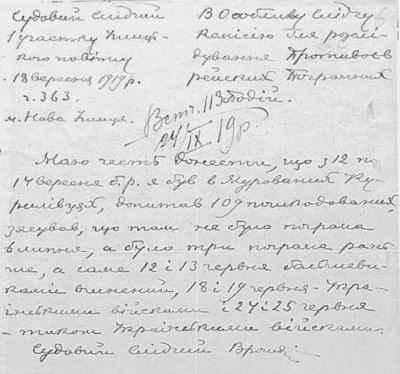 Судовий слідчий
1 участку Ушиць-
кого повіту
18 вересня 1919 р.
ч. 363.
м. Нова Ушиця.
В Особливу слідчу
комісію для розслі-
дування Протиєв
рейских Погромних
Подій.
Вст. 113
24/IX 19 р.
Маю честь донести, що з 12 по
14 вересня б.р. я був в Мурованих Ку-
рилівцях, допитав 109 потерпівших,
засував, що там не було погрома
в липні, а було три погрома рані-
ше, а саме 12 і 13 червня большеви-
ками вчинений, 18 і 19 червня - Укра-
їнськими військами і 24 і 25 червня
- також Українськими військами.
Судовий слідчий